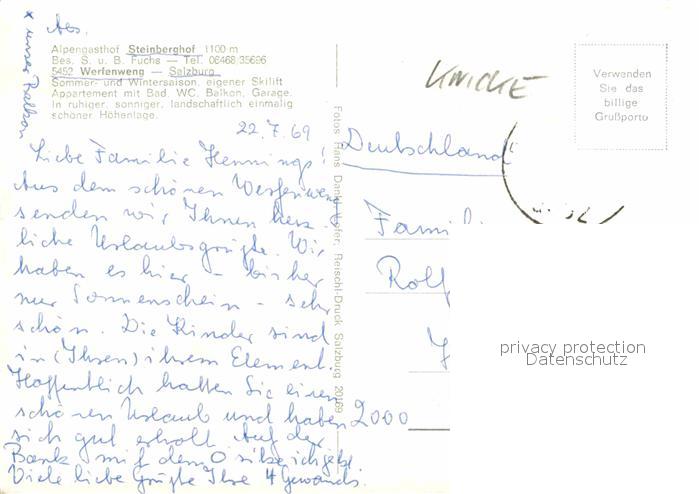 Abs.
Alpengasthof Steinberghof 1100 m
Bes. S. u. B. Fuchs — Tel. 06468/35696
5452 Werfenweng — Salzburg
Sommer- und Wintersaison, eigener Skilift
Appartement mit Bad, WC, Balkon, Garage.
In ruhiger, sonniger, landschaftlich einmalig
schöner Höhenlage.
x unser Balkon
22.7.69
Liebe Familie Hennings!
Aus dem schönen Werfenweng
senden wir Ihnen herz-
liche Urlaubsgrüße. Wir
haben es hier - bisher
nur Sonnenschein - sehr
schön. Die Kinder sind
in (Ihren) ihrem Element.
Hoffentlich hatten Sie einen
schönen Urlaub und haben
sich gut erholt. Auf der
Bank mit dem O sitze ich jetzt.
Viele liebe Grüße Ihre 4
Fotos: Hans Reischl-Druck Salzburg 20169
KNICKE
Verwenden
Sie das
billige
Grußporto
Deutschland
Famil
Rolf
2000
privacy protection
Datenschutz